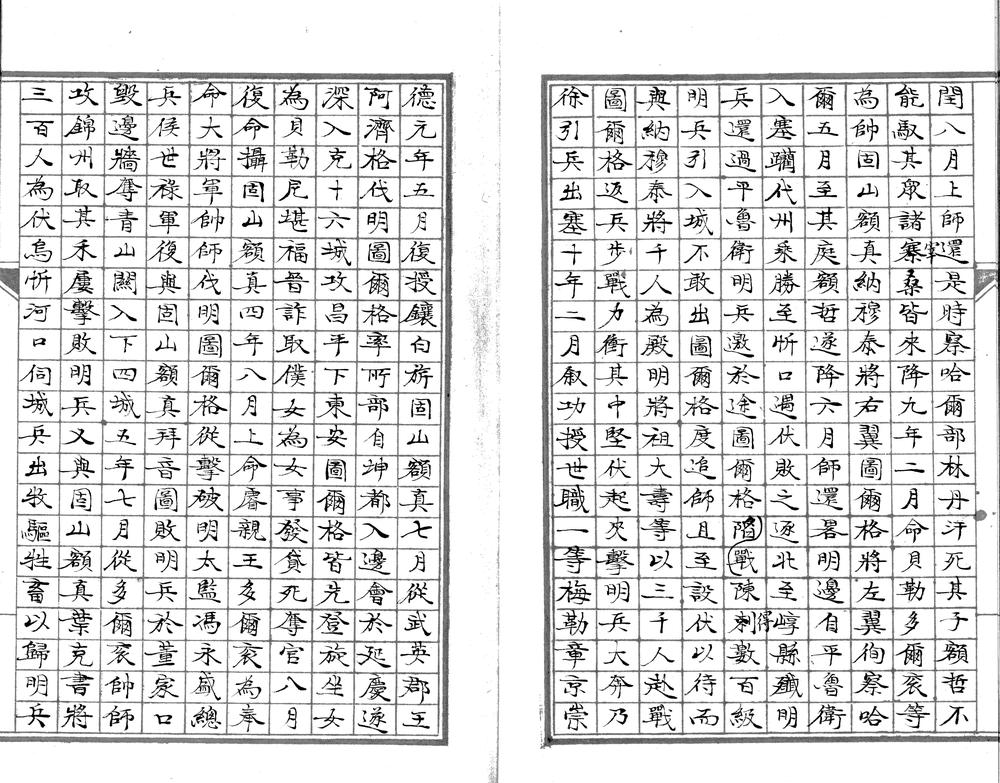 閏八月上師還是時察哈爾部林丹汗死其子額哲不
能馭其眾諸寨桑皆來降九年二月命貝勒多爾袞等
宰
為帥固山額真納穆泰將右翼圖爾格將左翼徇察哈
爾五月至其庭額哲遂降六月師還畧明邊自平魯衛
入塞躪代州乘勝至忻口遇伏敗之逐北至崞縣殲明
兵還過平魯衛明兵邀於途圖爾格陷戰陳刺數百級
得
明兵引入城不敢出圖爾格度追師且至設伏以待而
與納穆泰將千人為殿明將祖大壽等以三千人赴戰
圖爾格返兵步戰力衝其中堅伏起夾擊明兵大奔乃
徐引兵出塞十年二月敘功授世職一等梅勒章京崇
德元年五月復授鑲白旂固山額真七月從武英郡王
阿濟格伐明圖爾格率所部自坤都入邊會於延慶遂
深入克十六城攻昌平下東安圖爾格皆先登旋坐女
為貝勒尼堪福晉詐取僕女為女事發貸死奪官八月
復命攝固山額真四年八月上命睿親王多爾袞為奉
命大將軍帥師伐明圖爾格從擊破明太監馮永盛總
兵侯世祿軍復與固山額真拜音圖敗明兵於董家口
毀邊牆奪青山關入下四城五年七月從多爾袞帥師
攻錦州取其禾屢擊敗明兵又與固山額真葉克書將
三百人為伏烏忻河口伺城兵出牧驅牲畜以歸明兵